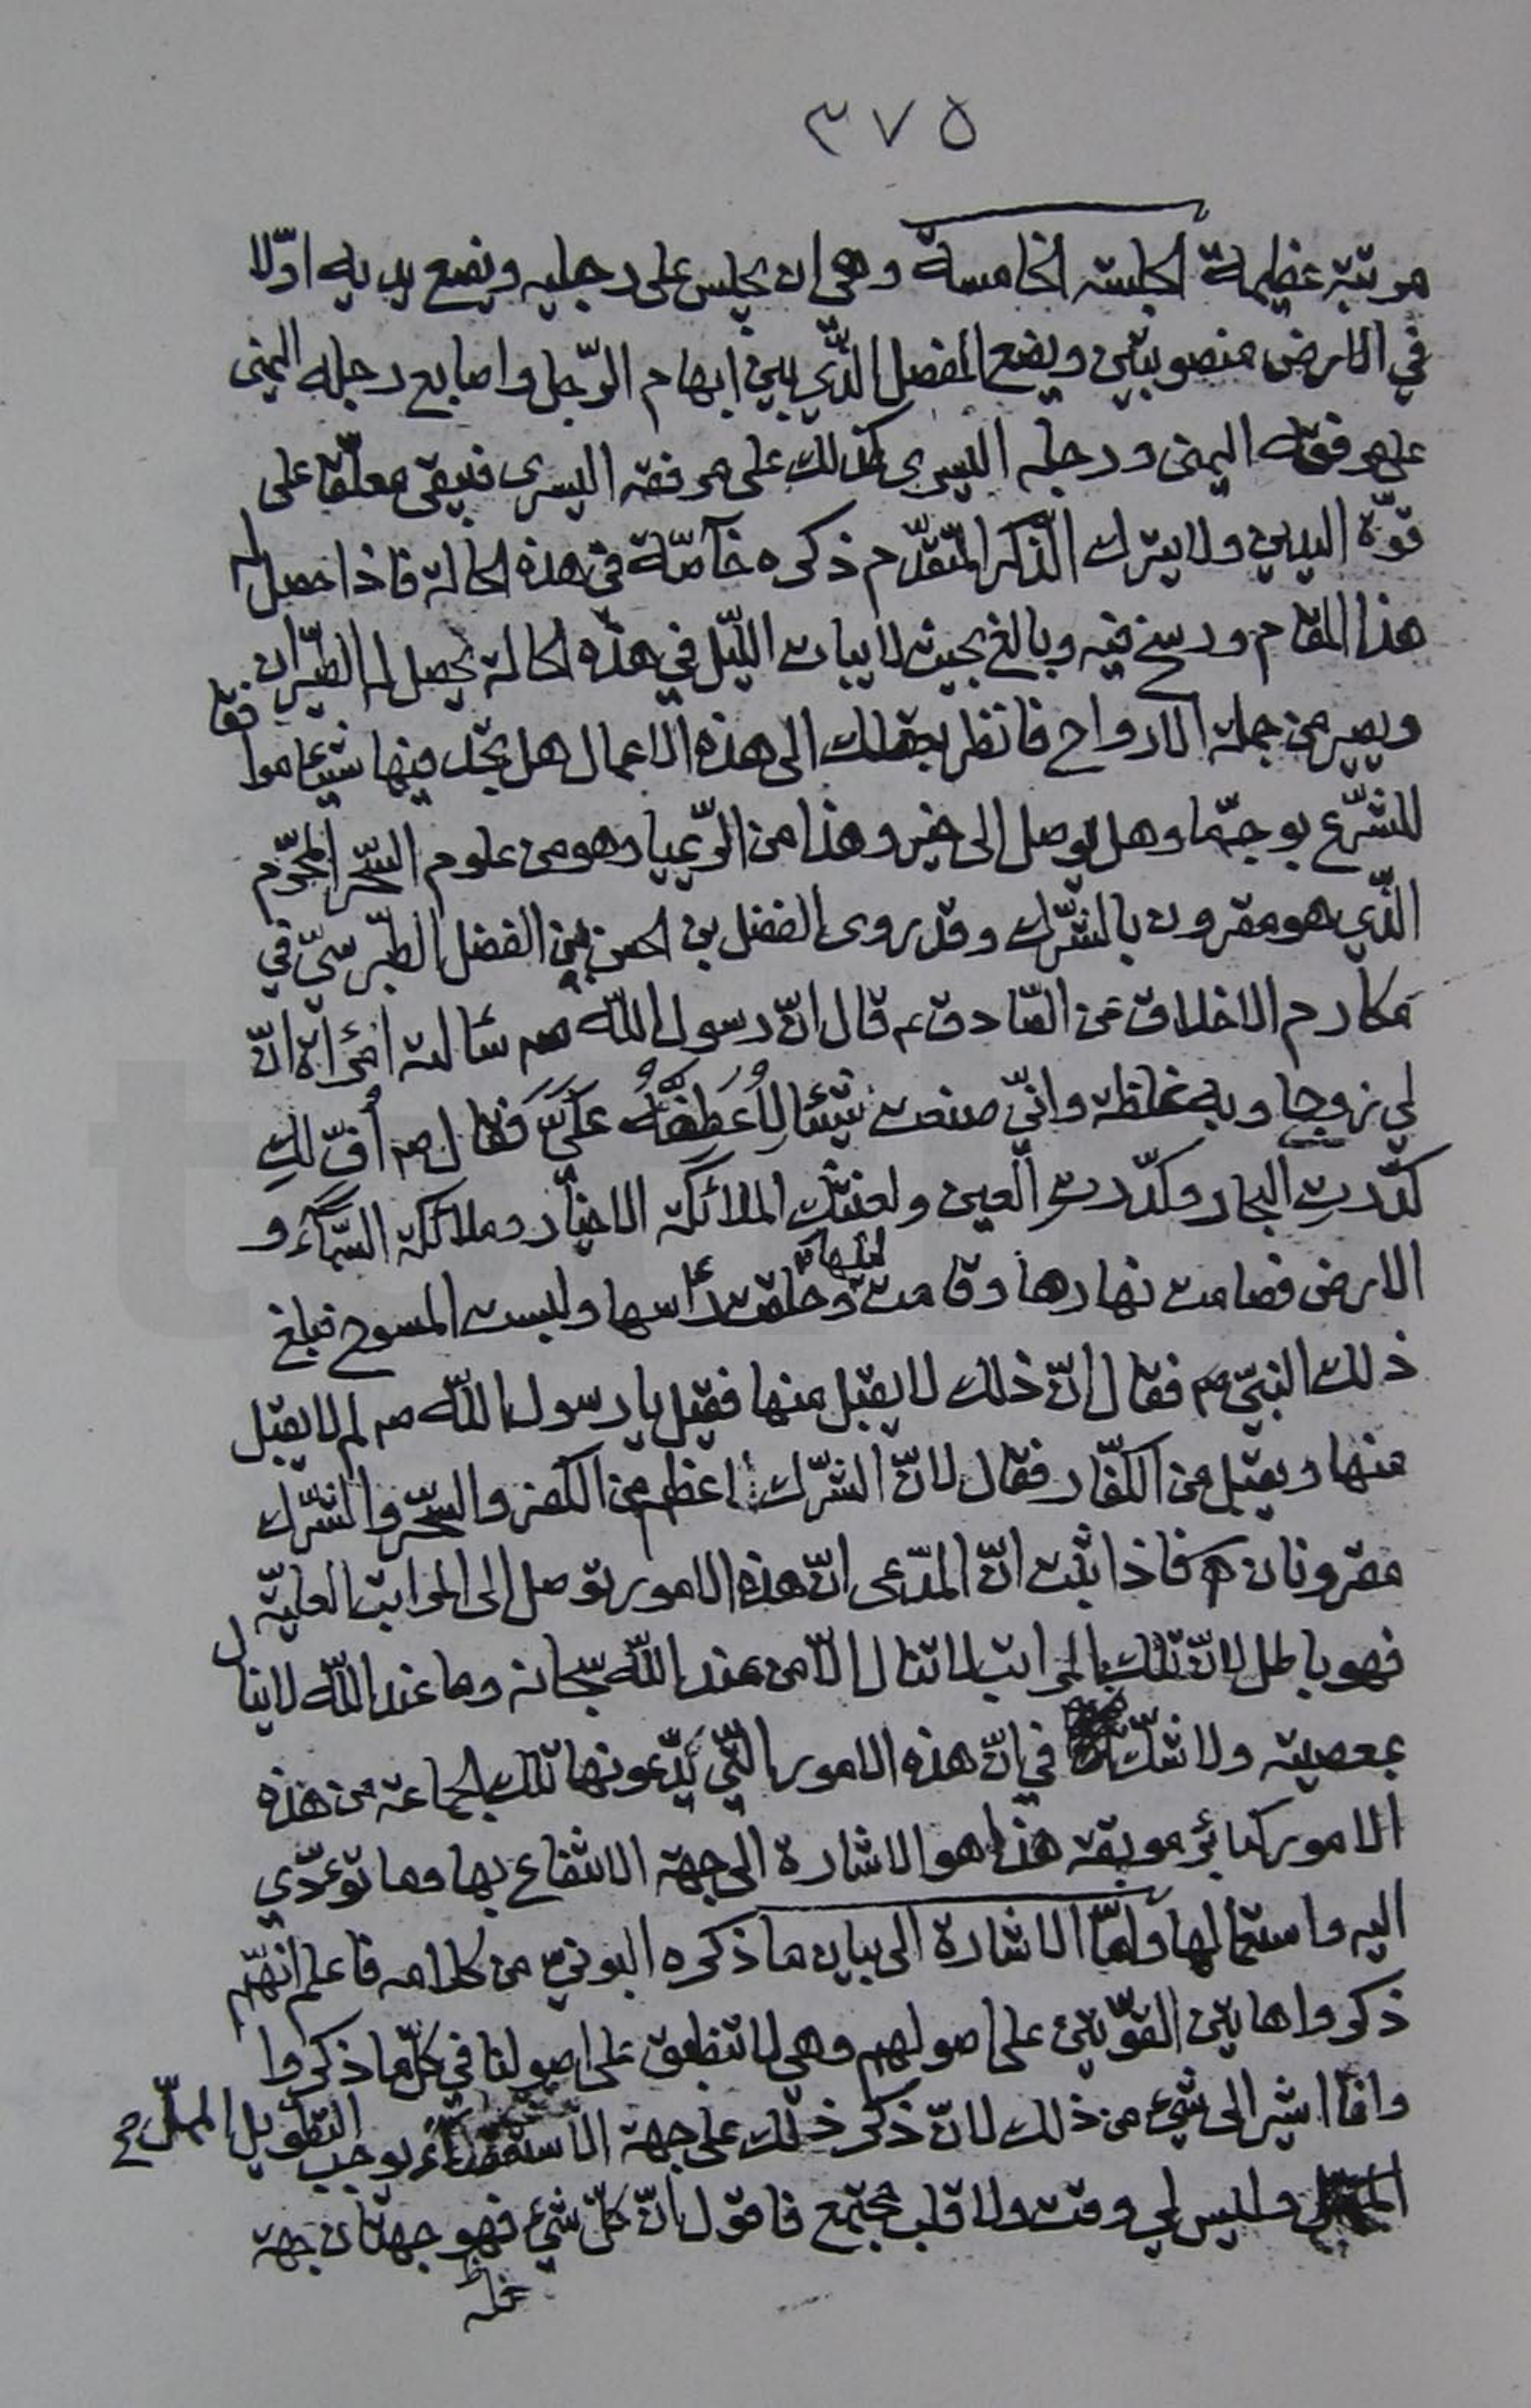 ٣٧٥
مرتبة عظيمة الجلسة الخامسة وهي ان يجلس على رجليه ويضع يديه اوّلا
في الارض منصوبتين ويضع المفصل الّذي بين ابهام الرّجل واصابع رجله اليمنى
على مرفقه اليمنى ورجله اليسرى كذلك على مرفقه اليسرى فيبقى معلّقا على
قوّة اليدين ولا يترك الذّكر المتقدّم ذكره خاصّة في هذه الحالة فاذا حصل له
هذا المقام ورسخ فيه وبالغ بحيث لا يبات اللّيل في هذه الحالة يحصل له الطّيران
ويصير من جملة الارواح فانظر بعقلك الى هذه الاعمال هل تجد فيها شيئا موافقا
للشّرع بوجه ما وهل يوصل الى خير وهذا من الرّيميا وهو من علوم السّحر المحرّم
الّذي هو مقرون بالشّرك وقد روى الفضل بن الحسن بن الفضل الطّبرسيّ في
مكارم الاخلاق عن الصّادق ع قال انّ رسول اللّه ص سئالته امرأة انّ
لي زوجا وبه غلظة وانّي صنعت شيئا لِأُعَطِّفَهُ عَلَيَّ فقال ص أفّ لكِ
كدّرتِ البحار وكدّرتِ العين ولعنتك الملائكة الاخيار وملائكة السّمآء و
الارض فصامت نهارها وقامت ليلها وحلقت رأسها ولبست المسوح فبلغ
ذلك النبيّ ص فقال انّ ذلك لا يقبل منها فقيل يا رسول اللّه ص لم لا يقبل
منها ويقبل من الكفّار فقال لانّ الشّرك اعظم من الكفر والسّحر والشّرك
مقرونان ه فاذا ثبت انّ المدّعى انّ هذه الامور توصل الى المراتب العليّة
فهو باطل لانّ تلك المراتب لا تنال الّا من عند اللّه سبحانه وما عند اللّه لا ينال
بمعصية ولا شكّ في انّ هذه الامور الّتي يدّعونها تلك الجماعة من هذه
الامور كبائر موبقة هذا هو الاشارة الى جهة الانتفاع بها وما تؤدّي
اليه واستعمالها وامّا الاشارة الى بيان ما ذكره البوني من كلامه فاعلم انّهم
ذكروا هايتين القوّتين على اصولهم وهي لا تنطبق على اصولنا في كلّ ما ذكروا
وانا اشير الى شيء من ذلك لانّ ذكر ذلك على جهة الاستقصاء يوجب التطويل المملّ صح
وليس لي وقت ولا قلب مجتمع فاقول انّ كلّ شيء فهو جهتان جهة